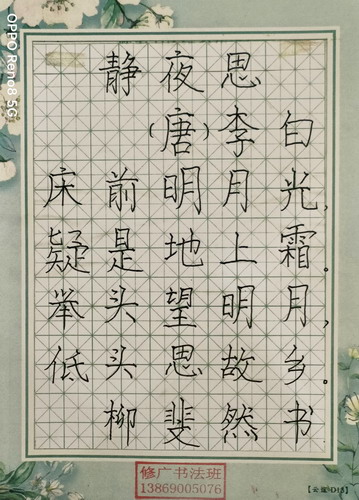 静夜思
(唐)李白
床前明月光,
疑是地上霜。
举头望明月,
低头思故乡。
柳斐然书
修广书法班
13869005076
OPPO Reno8 5G